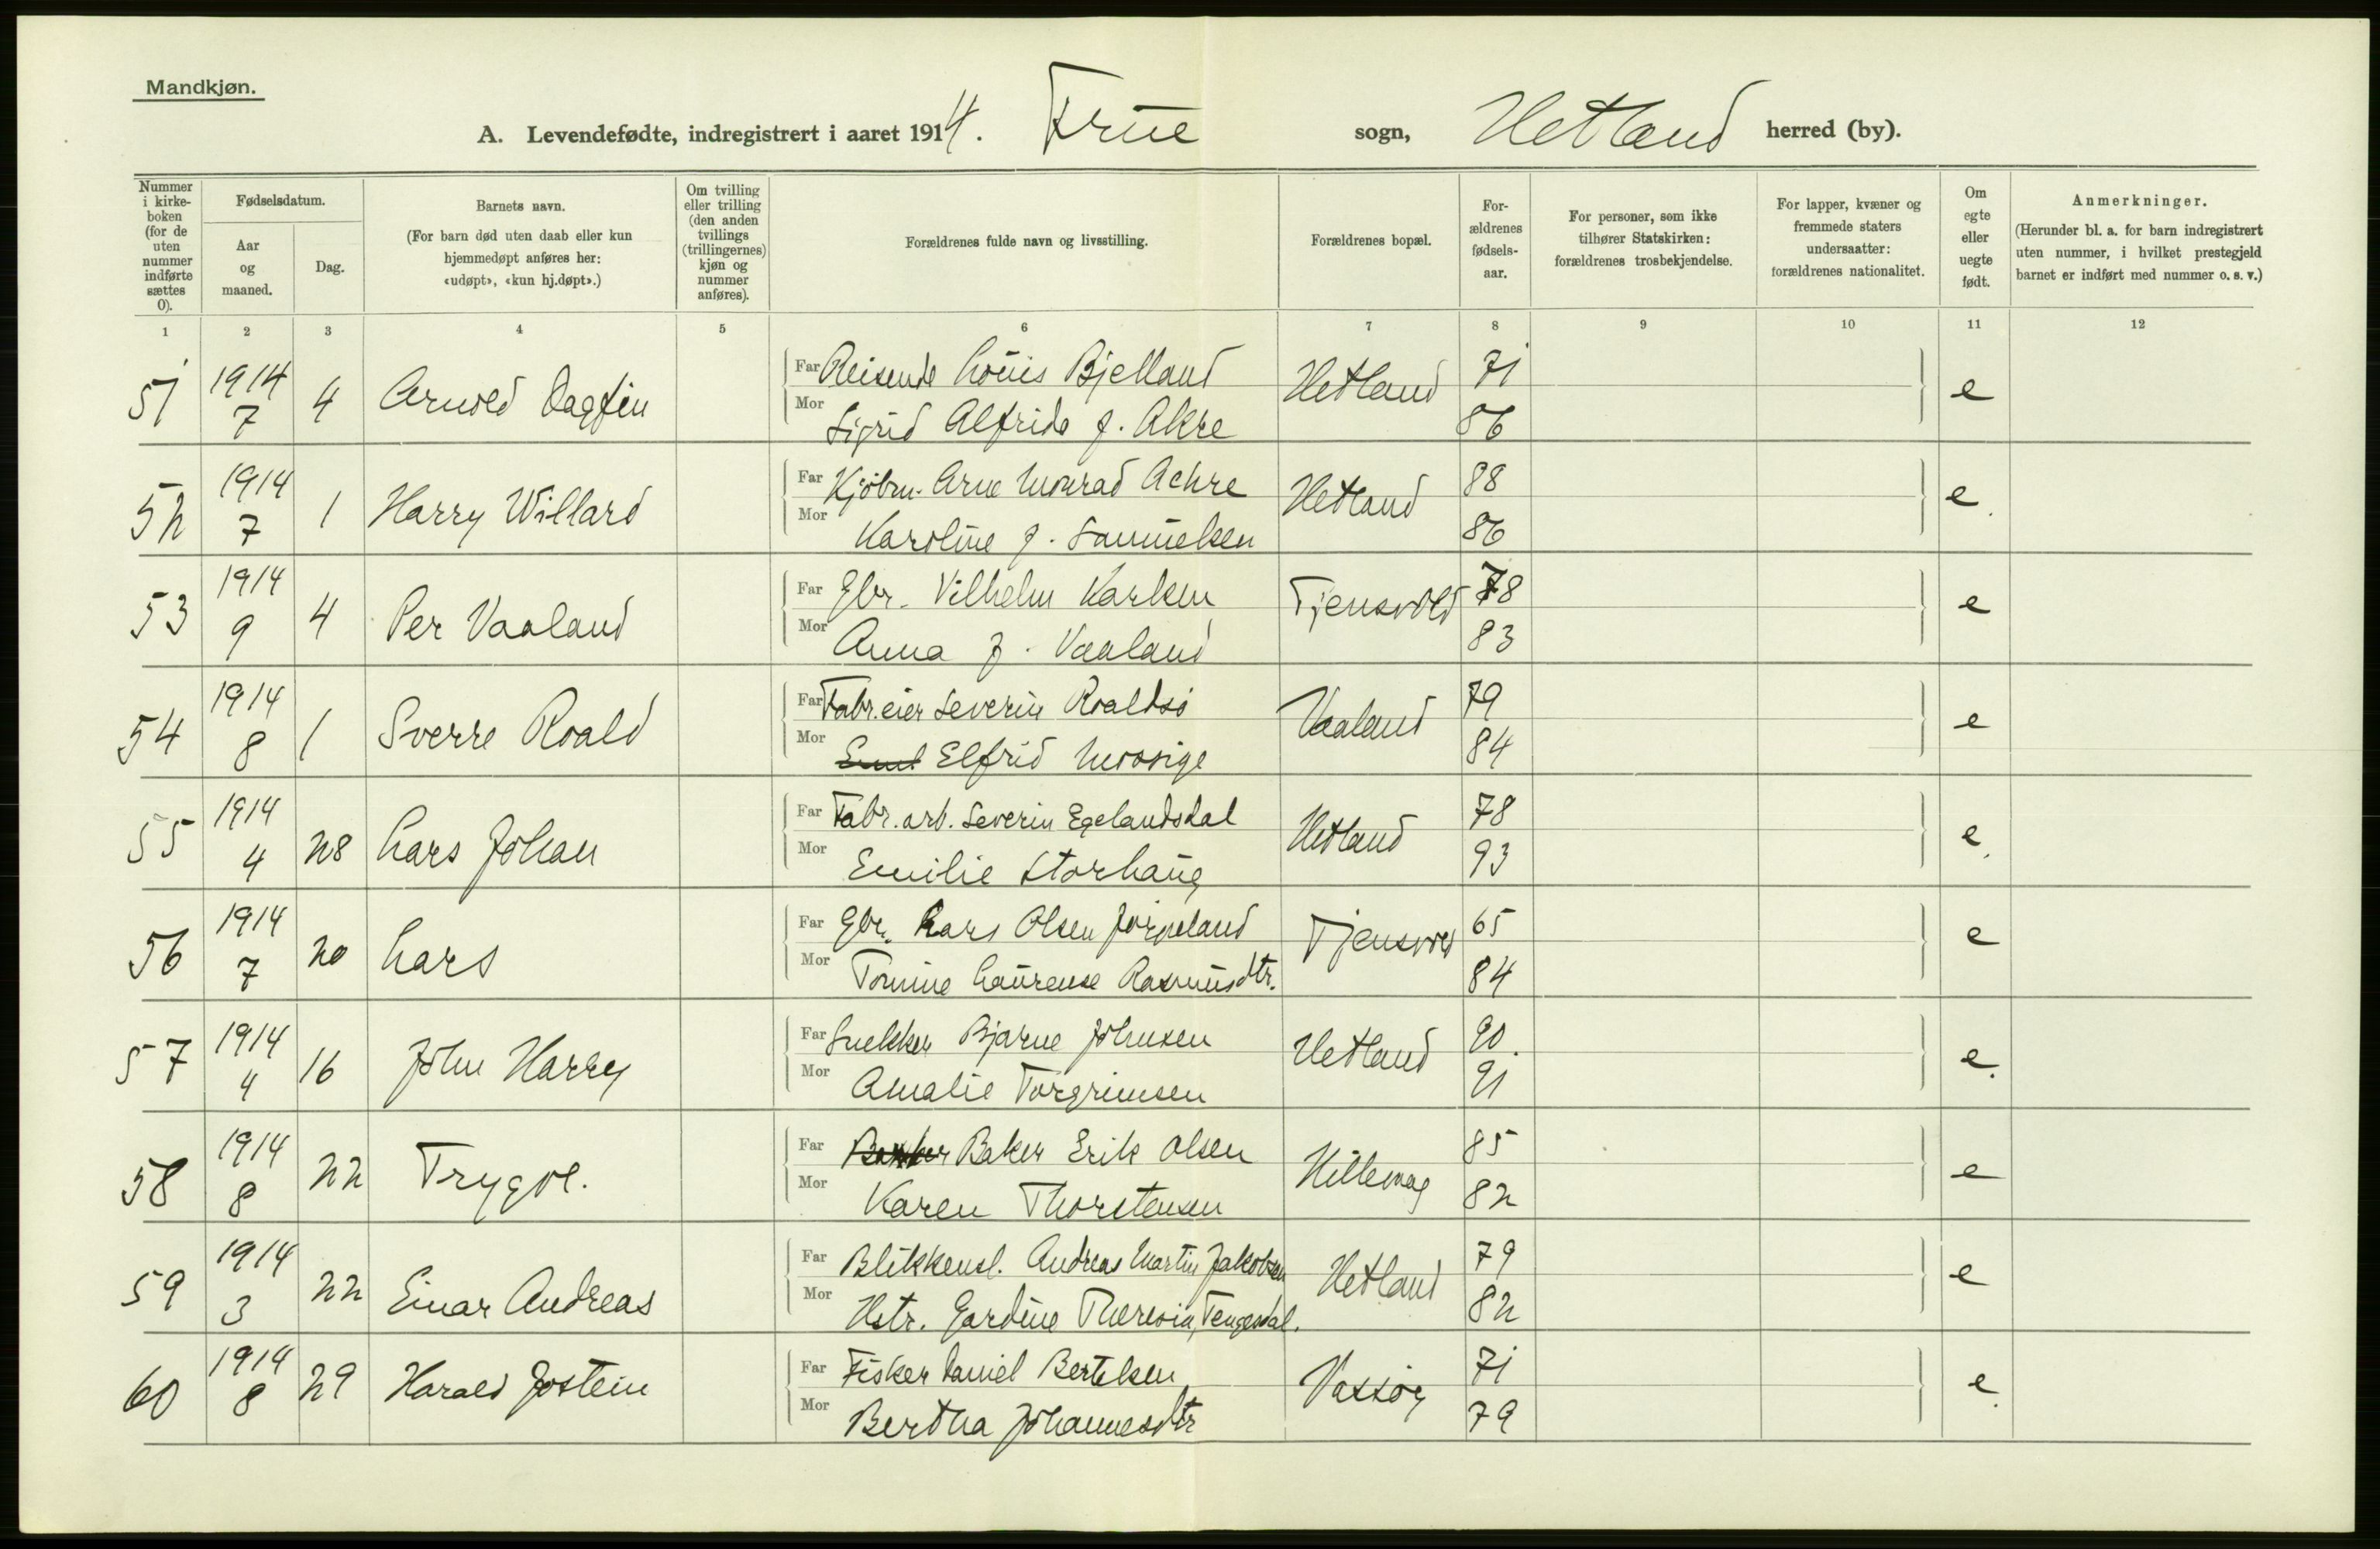 Mandkjøn.
A. Levendefødte, indregistrert i aaret 1914. Frue sogn, Hetland herred (by).
Nummer i kirke-boken (for de uten nummer indførte sættes 0).
Fødselsdatum.
Aar og maaned.
Dag.
Barnets navn.
(For barn død uten daab eller kun hjemmedøpt anføres her: «udøpt», «kun hj.døpt».)
Om tvilling eller trilling (den anden tvillings (trillingernes) kjøn og nummer anføres).
Forældrenes fulde navn og livsstilling.
Forældrenes bopæl.
For-ældrenes fødsels-aar.
For personer, som ikke tilhører Statskirken: forældrenes trosbekjendelse.
For lapper, kvæner og fremmede staters undersaatter: forældrenes nationalitet.
Om egte eller uegte født.
Anmerkninger.
(Herunder bl. a. for barn indregistrert uten nummer, i hvilket prestegjeld barnet er indført med nummer o. s. v.)
1 2 3 4 5 6 7 8 9 10 11 12
51 1914 7 4 Arnold Dagfin Far Reisende Louis Bjelland Hetland 71 e
Mor Sigrid Alfride f. Akre 86
52 1914 7 1 Harry Willard Far Kjöbm. Arne Monrad Achre Hetland 88 e.
Mor Karoline f. Samuelsen 86
53 1914 9 4 Per Vaaland Far Gbr. Vilhelm Karlsen Tjensvold 78 e
Mor Anna f. Vaaland 83
54 1914 8 1 Sverre Roald Far Fabr.eier Severin Roaldsö Vaaland 79 e
Mor Elfrid Mossige 84
55 1914 4 28 Lars Johan Far Fabr. arb. Severin Egelandsdal Hetland 78 e.
Mor Emilie Storhaug 93
56 1914 7 20 Lars Far Gbr. Lars Olsen Jörpeland Tjensvold 65 e
Mor Tomine Laurense Rasmusdtr. 84
57 1914 4 16 John Harry Far Snekker Bjarne Johnsen Hetland 90. e.
Mor Amalie Torgrimsen 91
58 1914 8 22 Trygve. Far Baker Erik Olsen Hillevaag 85 e
Mor Karen Thorstensen 82
59 1914 3 22 Einar Andreas Far Blikkensl. Andreas Martin Jakobsen Hetland 79 e
Mor Hstr. Gardine Theresia Tengesdal. 82
60 1914 8 29 Harald Jostein Far Fisker Daniel Bertelsen Vassöy 71 e.
Mor Bertha Johannesdtr 79